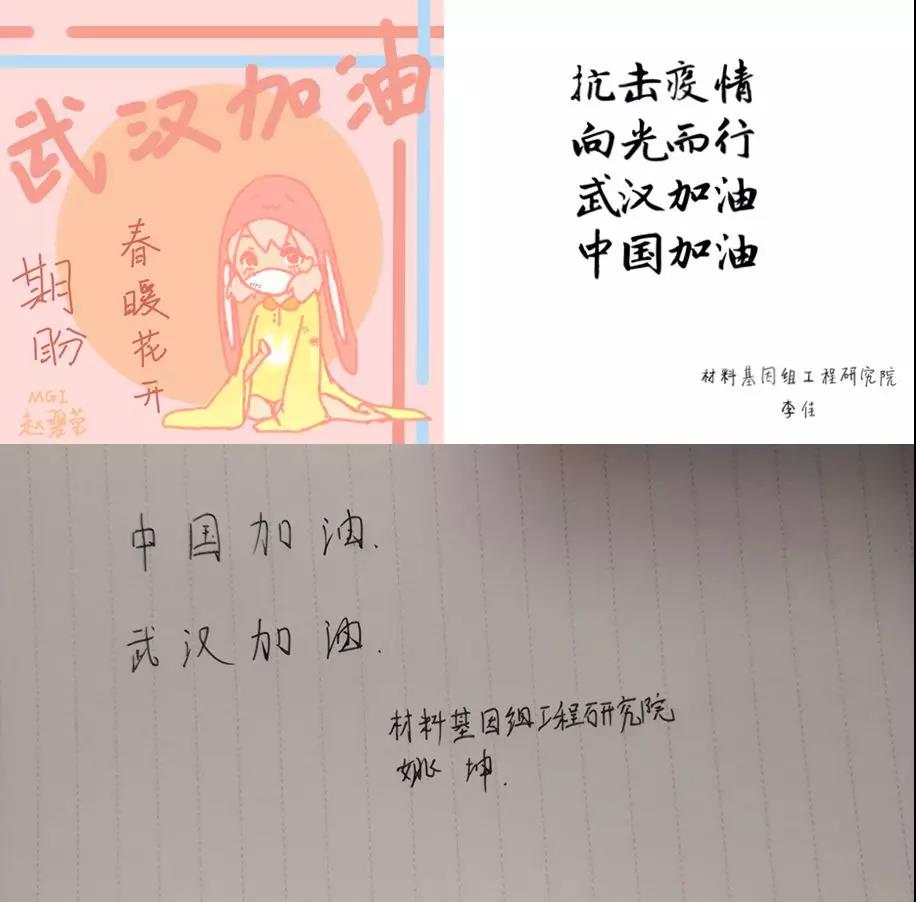 武汉加油
春暖花开
期盼
MGI
赵碧莹
抗击疫情
向光而行
武汉加油
中国加油
材料基因组工程研究院
李佳
中国加油.
武汉加油.
材料基因组工程研究院
姚坤.